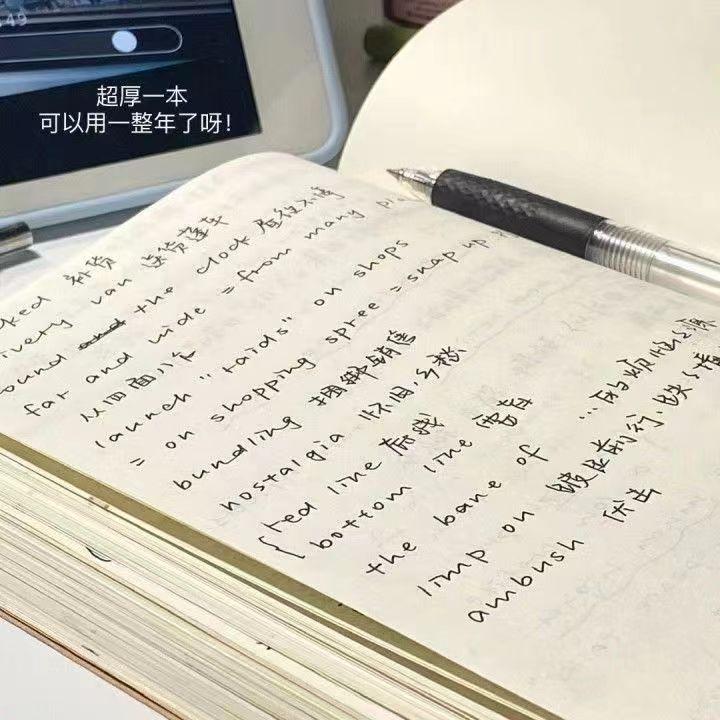 549
超厚一本
可以用一整年了呀!
ked 补货
ivery van 送货篷车
ound the clock 昼夜不停
far and wide = from many
从四面八方
launch "raids" on shops
= on shopping spree = snap up
bundling 捆绑销售
nostalgia 怀旧,乡愁
{ red line 底线
bottom line
the bane of ...的烦恼之源
limp on 跛足前行,
ambush 伏击